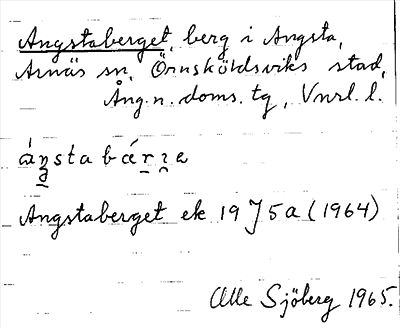 Angstaberget, berg i Angsta,
Arnäs sn, Örnsköldsviks stad,
Ång. n. doms. tg, Vnrl. l.
áŋ̠sta bǽr̠ɿ̯a
Angstaberget ek 19 J 5a (1964)
Olle Sjöberg 1965.